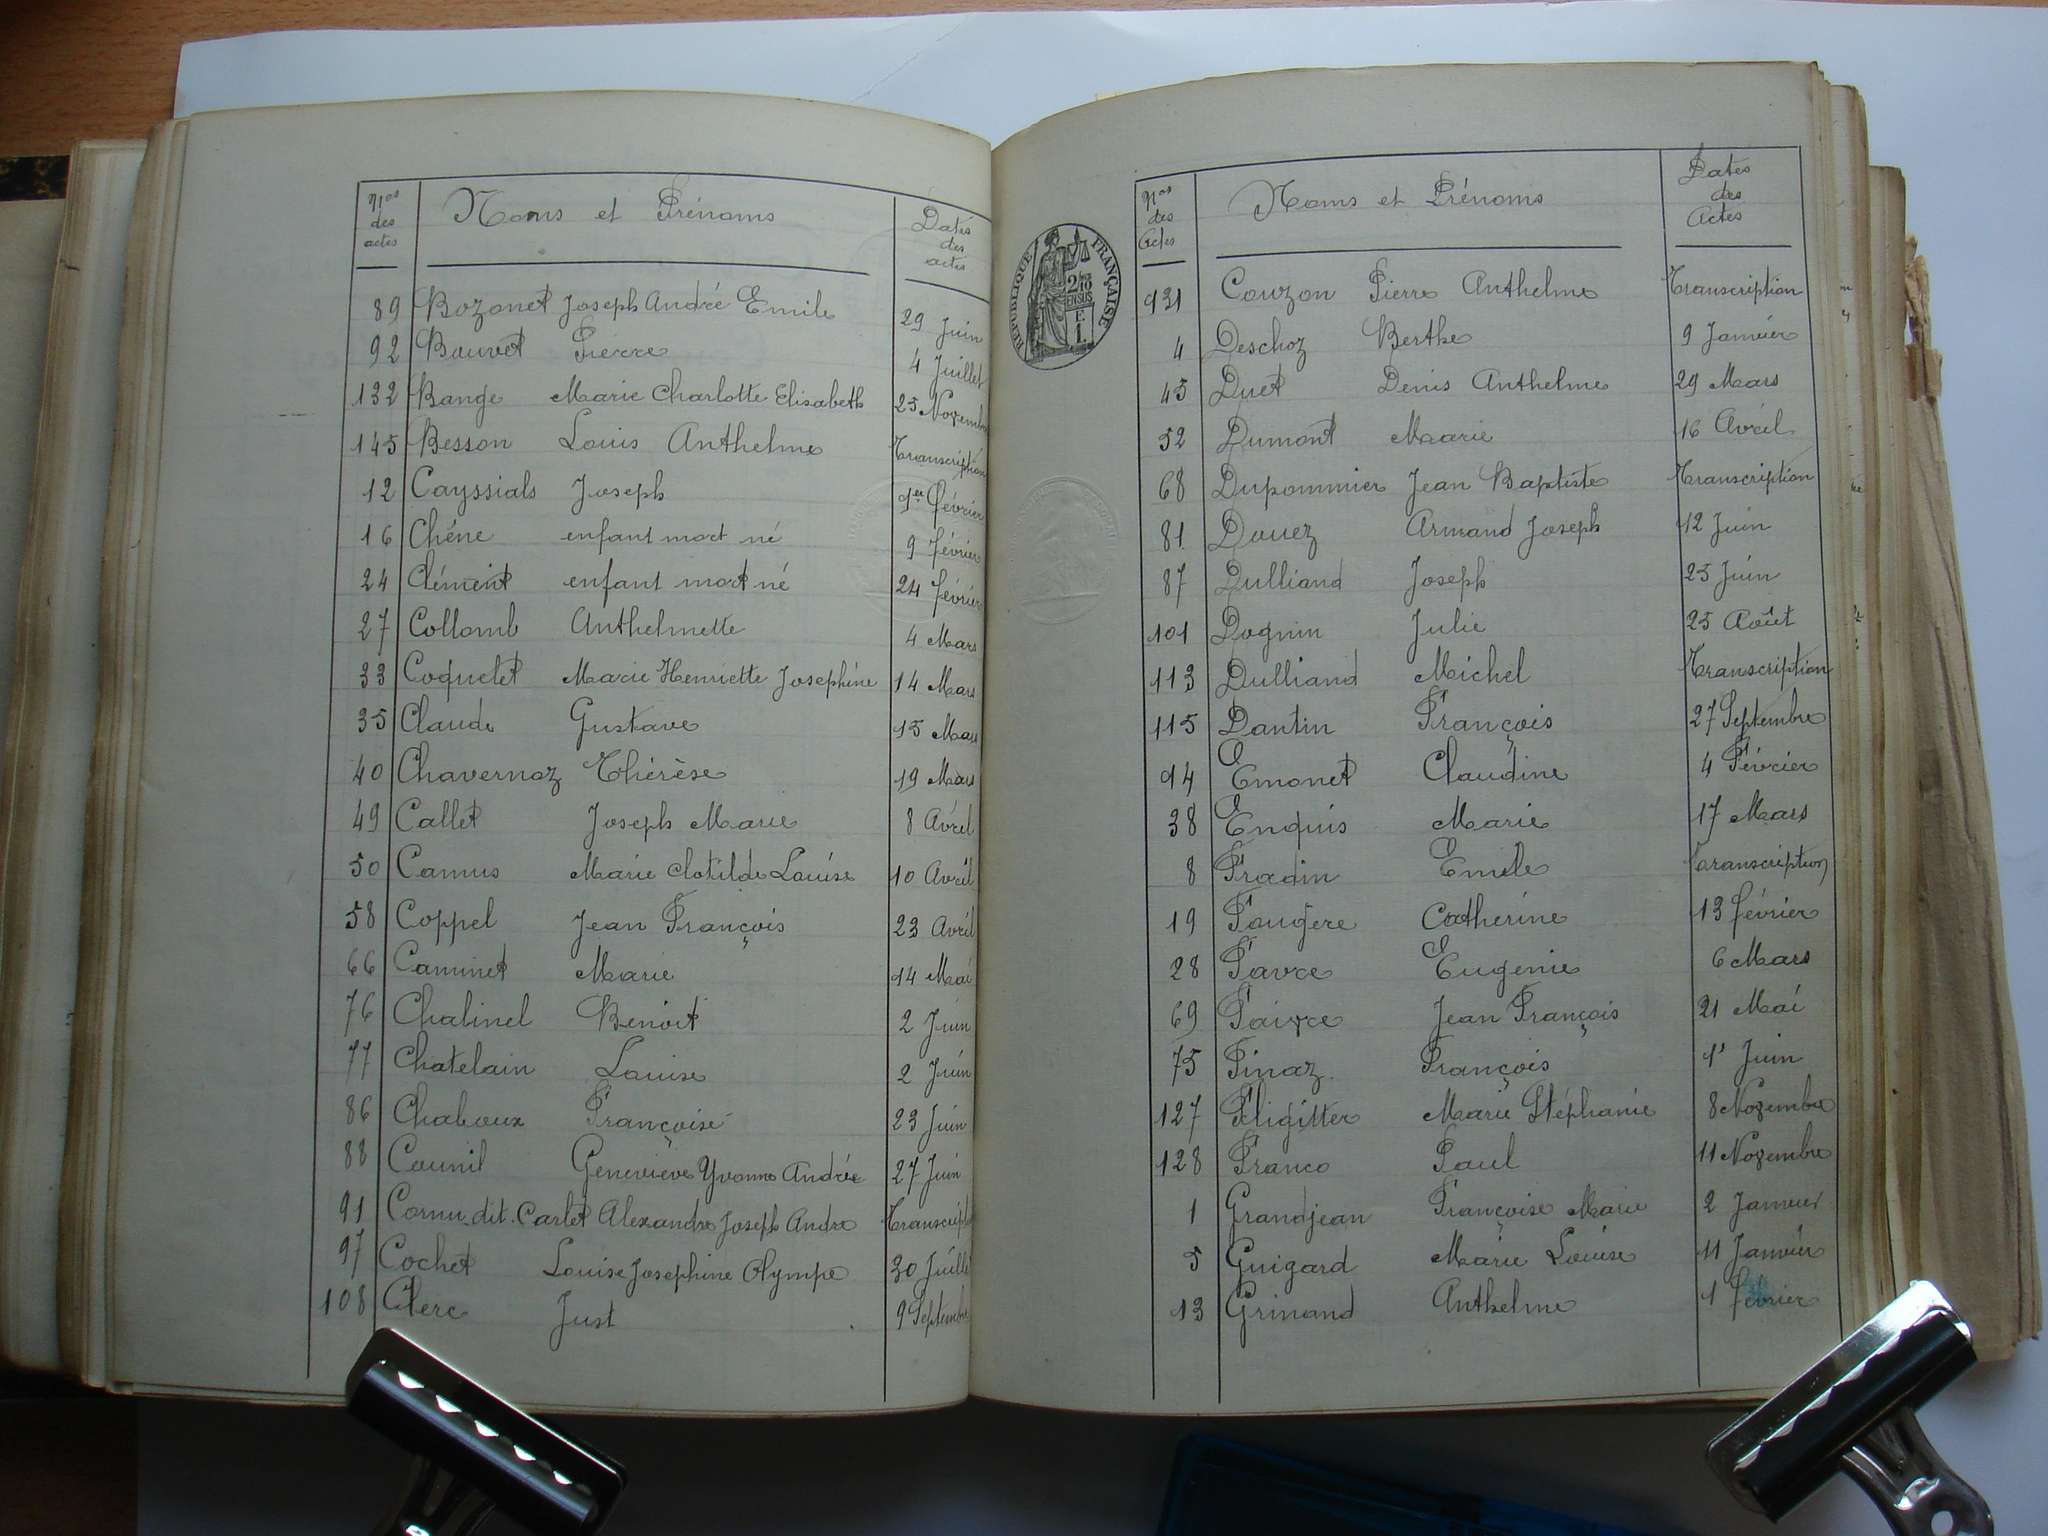 Nos des actes
Noms et Prénoms
Dates des actes
89 Bozonet Joseph André Emile 29 Juin
92 Bouvet Pierre 4 Juillet
132 Bange Marie Charlotte Elisabeth 25 Novembre
145 Besson Louis Anthelme Transcription
12 Cayssials Joseph 1er Février
16 Chêne enfant mort né 9 février
24 Clément enfant mort né 24 février
27 Collomb Anthelmette 4 Mars
33 Coquelet Marie Henriette Joséphine 14 Mars
35 Claude Gustave 15 Mars
40 Chavernoz Thérèse 19 Mars
49 Callet Joseph Marie 8 Avril
50 Camus Marie Clotilde Louise 10 Avril
58 Coppel Jean François 23 Avril
66 Caminet Marie 14 Mai
76 Chalinel Benoit 2 Juin
77 Chatelain Louise 2 Juin
86 Chaboux Françoise 23 Juin
88 Counil Geneviève Yvonne Andrée 27 Juin
91 Cornu dit Carlet Alexandre Joseph Andre Transcript
97 Cochet Louise Josephine Olympe 30 Juille
108 Clerc Just 9 Septembre
RÉPUBLIQUE FRANÇAISE
2/10 EN SUS
E
1.
Nos des Actes
Noms et Prénoms
Dates des Actes
931 Couzon Pierre Anthelme Transcription
4 Deschoz Berthe 9 Janvier
45 Duet Denis Anthelme 29 Mars
52 Dumont Marie 16 Avril
68 Dupommier Jean Baptiste Transcription
81 Douez Armand Joseph 12 Juin
87 Dulliand Joseph 25 Juin
101 Dognin Julie 25 Août
113 Dulliand Michel Transcription
115 Dantin François 27 Septembre
14 Emonet Claudine 4 Février
38 Enquis Marie 17 Mars
8 Fradin Emile Transcription
19 Fougère Catherine 13 février
28 Favre Eugénie 6 Mars
69 Faivre Jean François 21 Mai
75 Finaz François 1r Juin
127 Fligitter Marie Stéphanie 8 Novembre
128 Franco Paul 11 Novembre
1 Grandjean Françoise Marie 2 Janvier
5 Guigard Marie Louise 11 Janvier
13 Grinand Anthelme 1 février